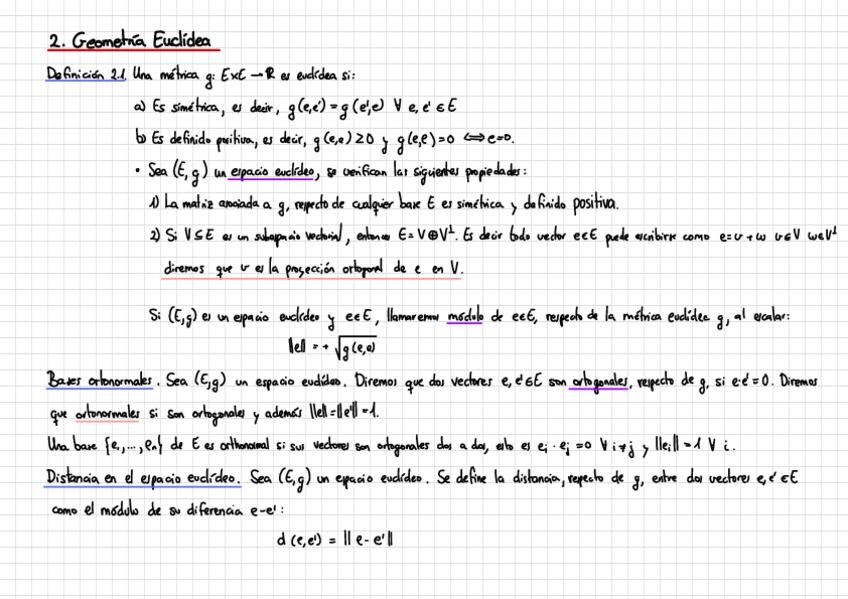 2. Geometría Euclídea
Definición 2.1. Una métrica g: E×E → R es euclídea si:
a) Es simétrica, es decir, g(e,e') = g(e',e) ∀ e, e' ∈ E
b) Es definido positiva, es decir, g(e,e) ≥ 0 y g(e,e) = 0 ⟺ e=0.
• Sea (E, g) un espacio euclídeo, se verifican las siguientes propiedades:
1) La matriz asociada a g, respecto de cualquier base E es simétrica y definido positiva.
2) Si V ≤ E es un subespacio vectorial, entonces E = V ⊕ V⊥. Es decir todo vector e∈E puede escribirse como e = v + w v∈V w∈V⊥
diremos que v es la proyección ortogonal de e en V.
Si (E,g) es un espacio euclídeo y e∈E, llamaremos módulo de e∈E, respecto de la métrica euclídea g, al escalar:
||e|| = + √g(e,e)
Bases ortonormales. Sea (E,g) un espacio euclídeo. Diremos que dos vectores e, e'∈E son ortogonales, respecto de g, si e·e' = 0. Diremos
que ortonormales si son ortogonales y además ||e|| = ||e'|| = 1.
Una base {e₁,...,eₙ} de E es orthonormal si sus vectores son ortogonales dos a dos, esto es eᵢ · eⱼ = 0 ∀ i≠j y ||eᵢ|| = 1 ∀ i.
Distancia en el espacio euclídeo. Sea (E,g) un espacio euclídeo. Se define la distancia, respecto de g, entre dos vectores e,e' ∈ E
como el módulo de su diferencia e-e':
d (e,e') = || e - e' ||